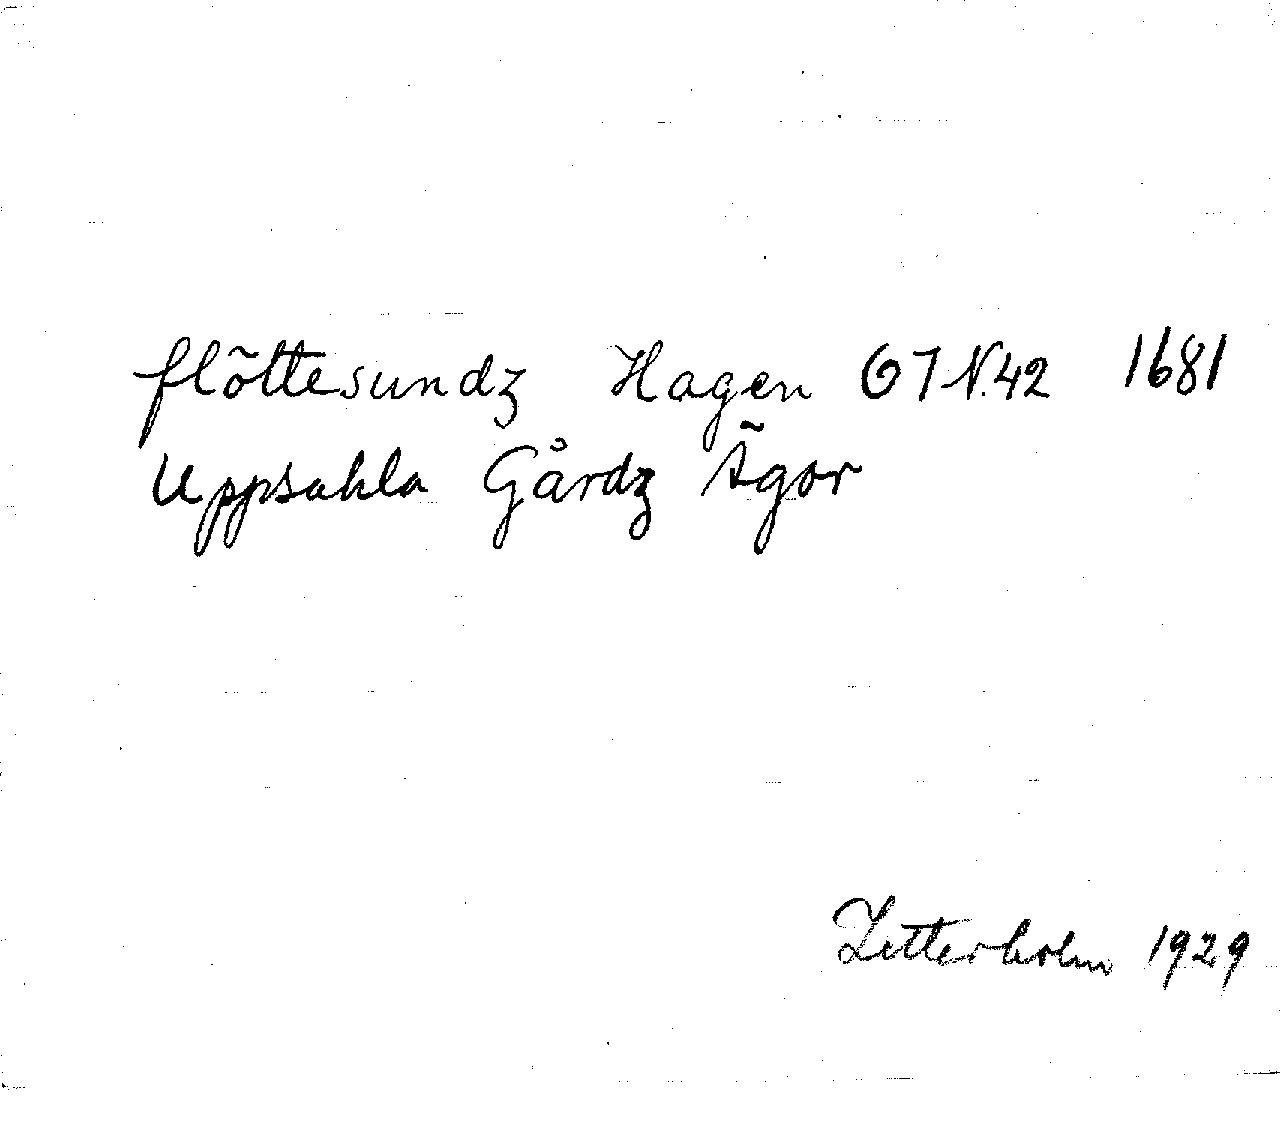 flõttesundz Hagen G7 N.42 1681
Uppsahla Gårdz Ãgor
Zetterholm 1929